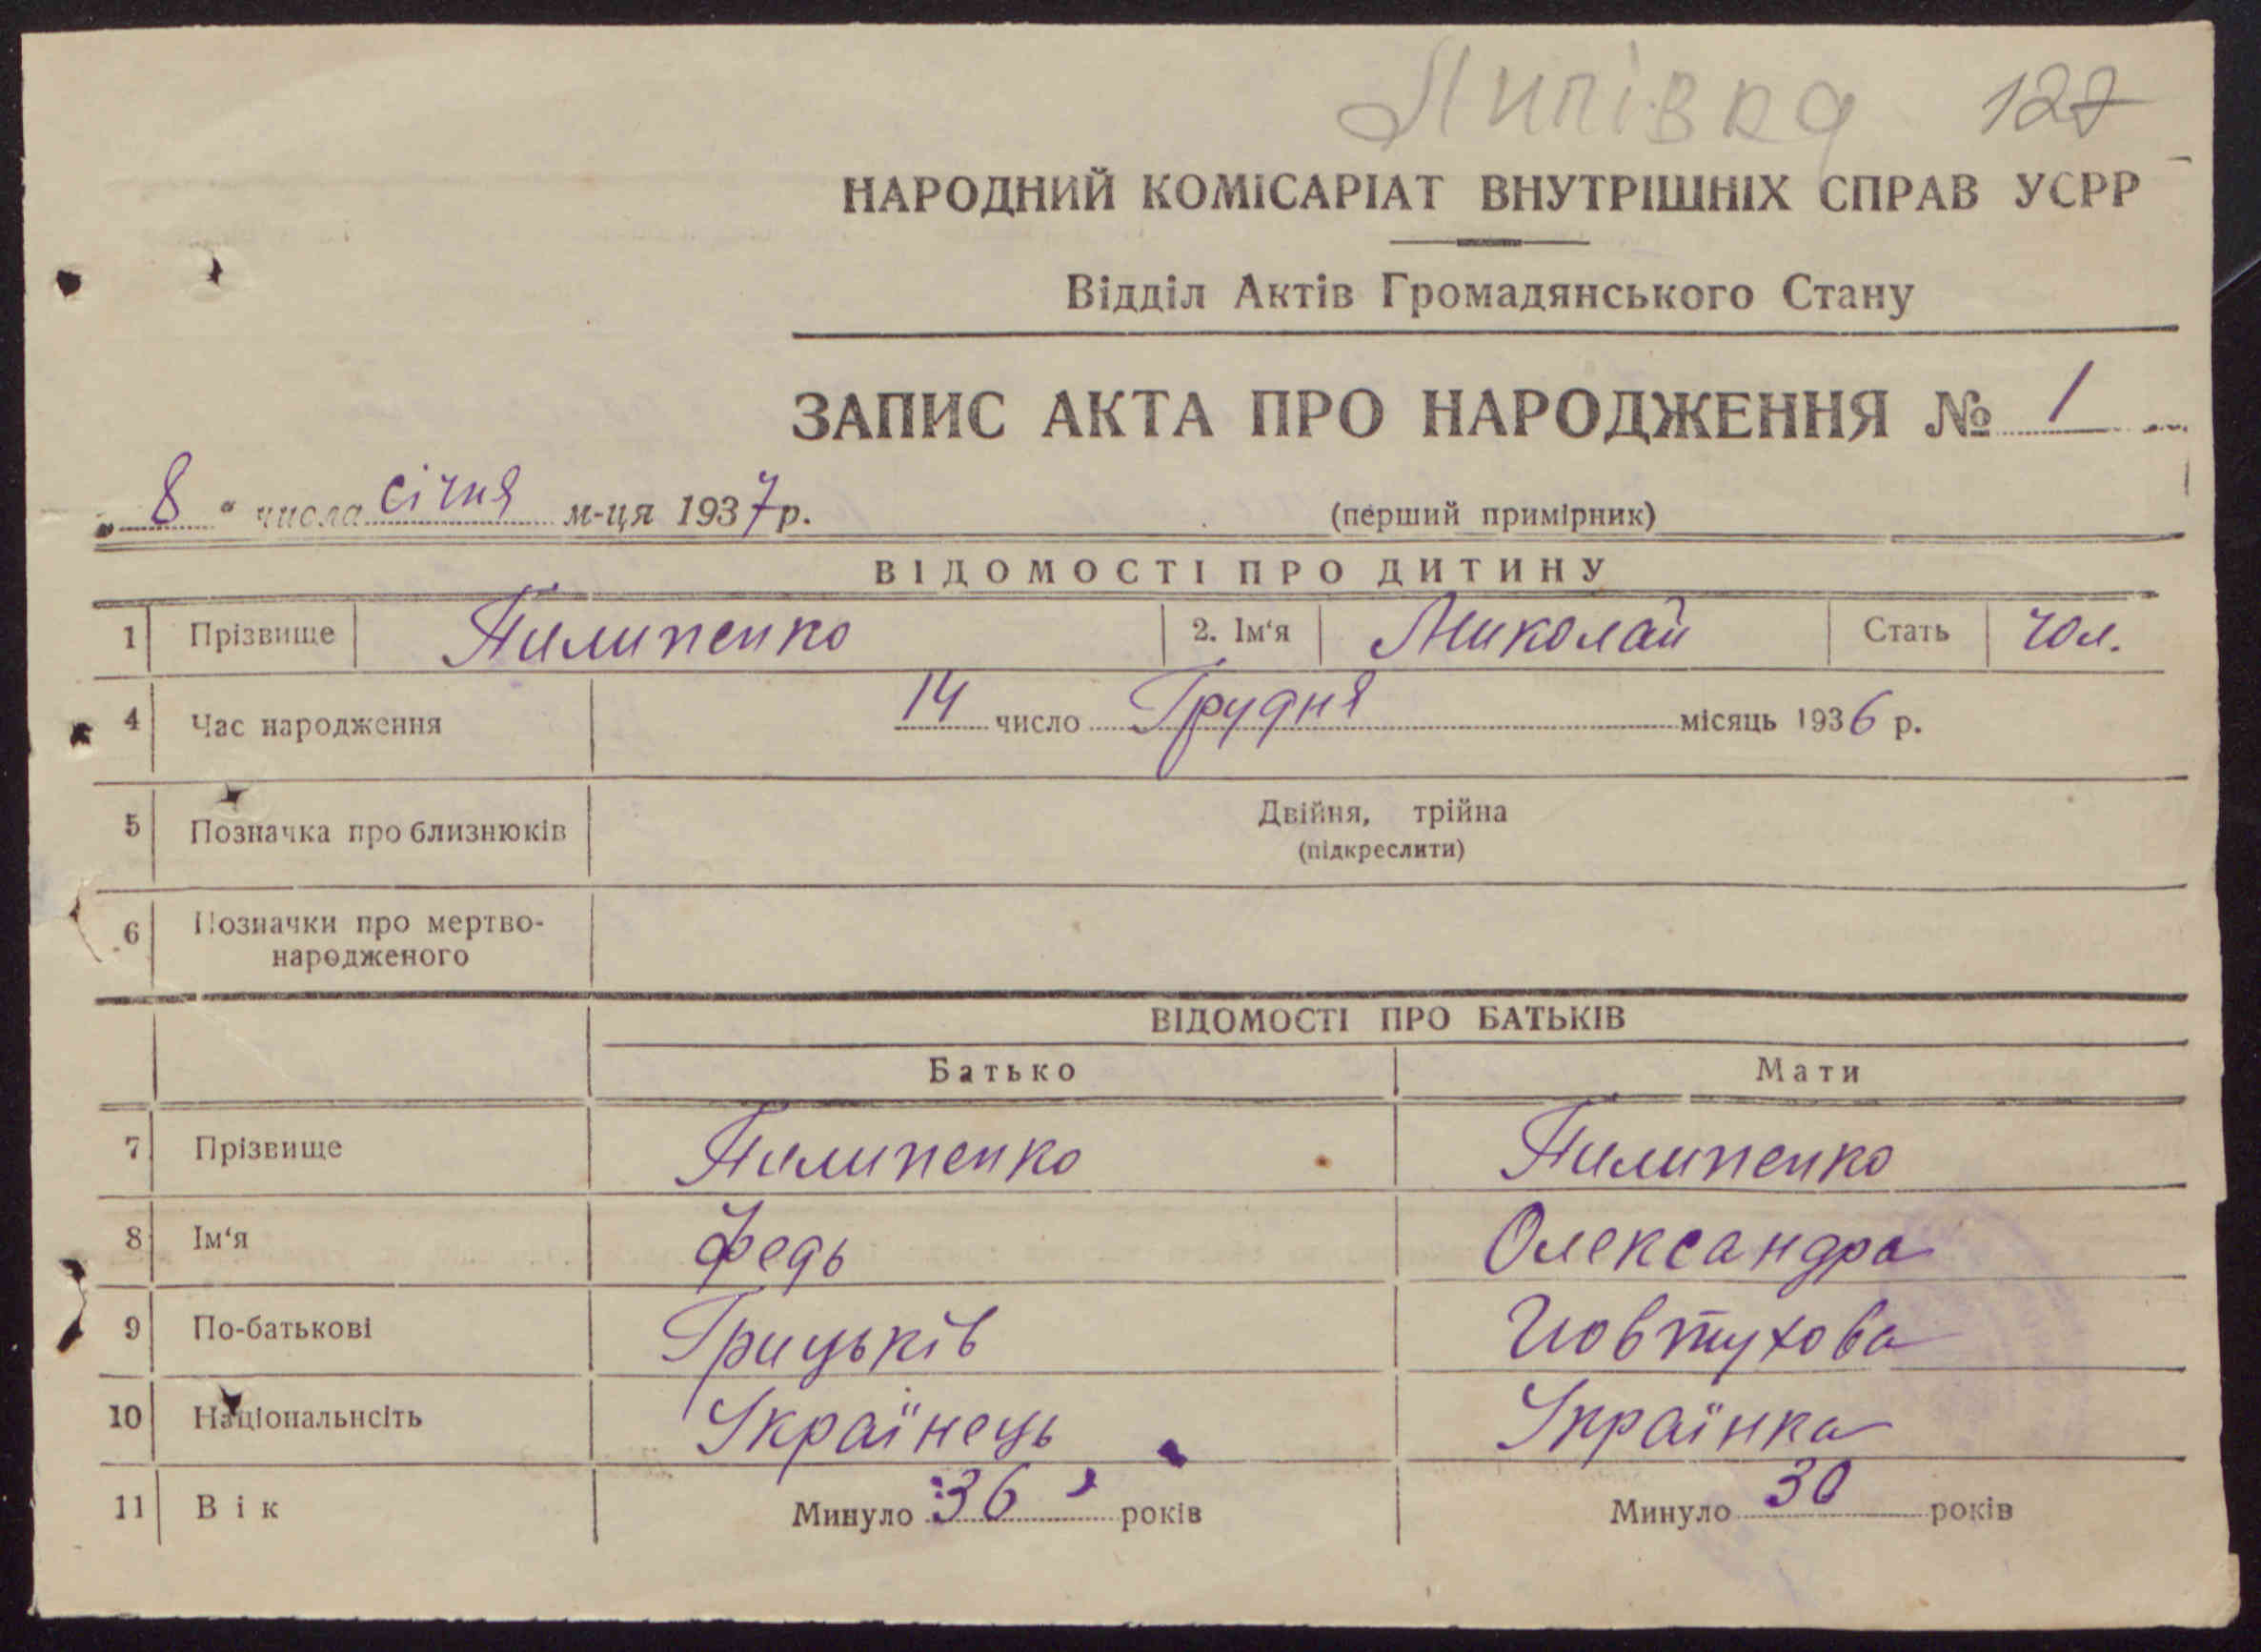 Липівка 127
НАРОДНИЙ КОМІСАРІАТ ВНУТРІШНІХ СПРАВ УСРР
Відділ Актів Громадянського Стану
ЗАПИС АКТА ПРО НАРОДЖЕННЯ № 1
„ 8 “ числа січня м-ця 1937 р. (перший примірник)
ВІДОМОСТІ ПРО ДИТИНУ
1 Прізвище Пилипенко 2. Ім‘я Миколай Стать чол.
4 Час народження 14 число Грудня місяць 1936 р.
5 Позначка про близнюків Двійня, трійна
(підкреслити)
6 Позначки про мертво-
народженого
ВІДОМОСТІ ПРО БАТЬКІВ
Батько Мати
7 Прізвище Пилипенко Пилипенко
8 Ім‘я Федь Олександра
9 По-батькові Грицьків Йовтухова
10 Національнсіть Українець Українка
11 Вік Минуло 36 років Минуло 30 років